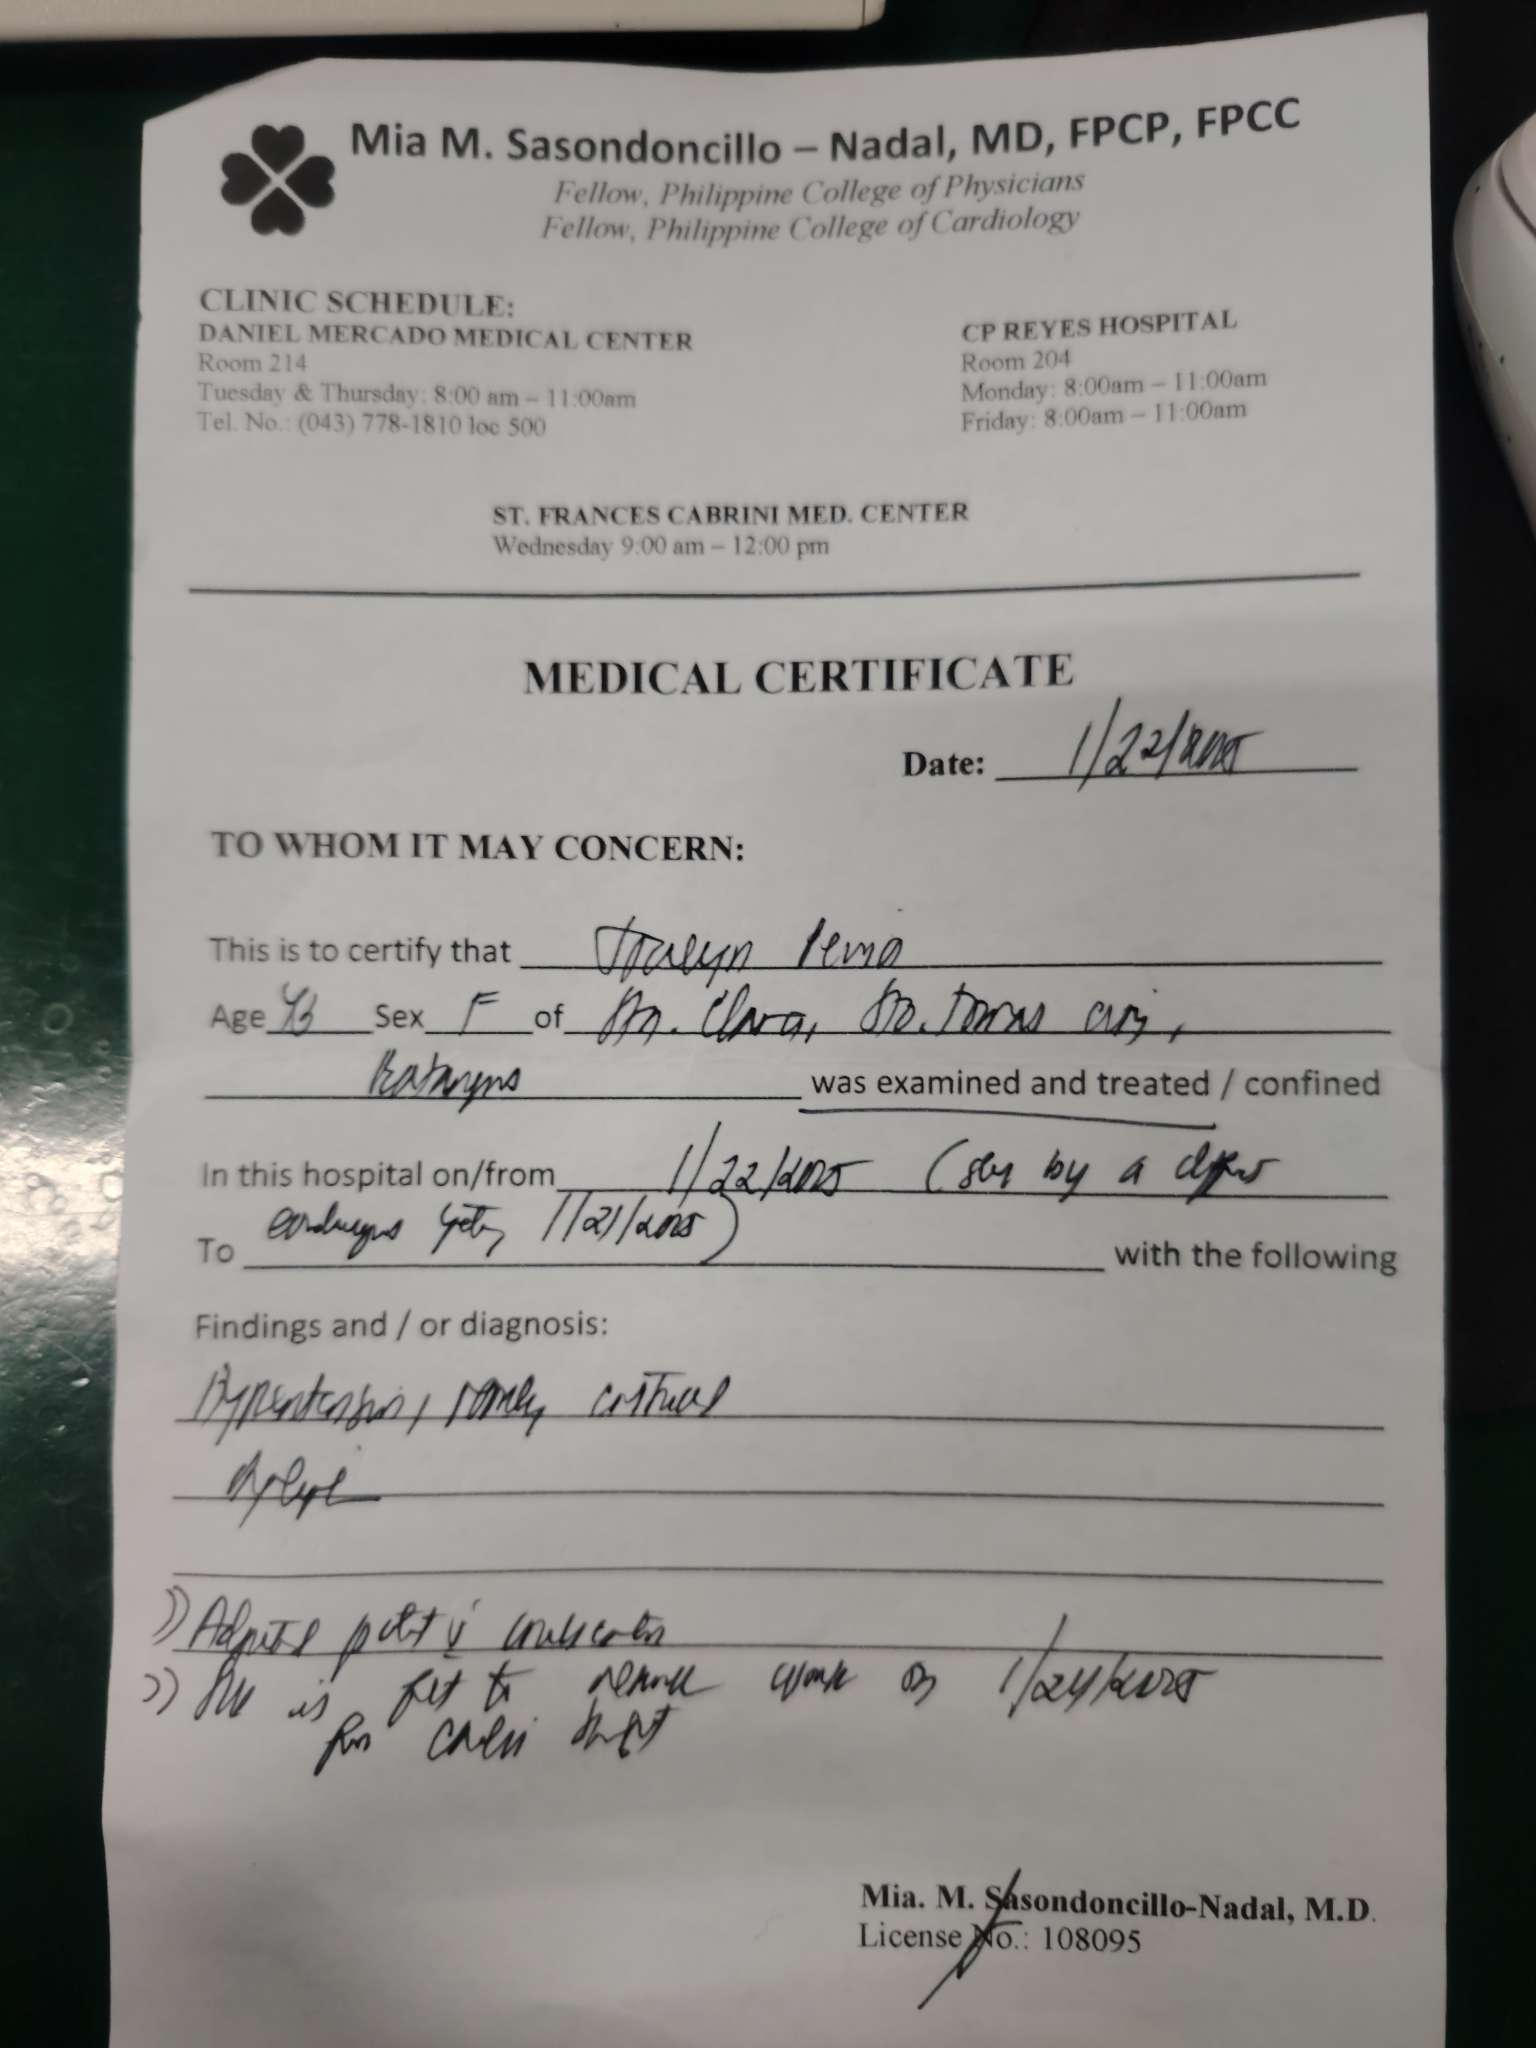 Mia M. Sasondoncillo – Nadal, MD, FPCP, FPCC
Fellow, Philippine College of Physicians
Fellow, Philippine College of Cardiology
CLINIC SCHEDULE:
DANIEL MERCADO MEDICAL CENTER
Room 214
Tuesday & Thursday: 8:00 am – 11:00am
Tel. No.: (043) 778-1810 loc 500
CP REYES HOSPITAL
Room 204
Monday: 8:00am – 11:00am
Friday: 8:00am – 11:00am
ST. FRANCES CABRINI MED. CENTER
Wednesday 9:00 am – 12:00 pm
MEDICAL CERTIFICATE
Date: 1/22/2025
TO WHOM IT MAY CONCERN:
This is to certify that
Age Sex F of Sta. Clara, Sto. Tomas City,
Batangas was examined and treated / confined
In this hospital on/from 1/22/2025 ( by a
To 1/21/2025) with the following
Findings and / or diagnosis:
Hypertension, controlled
1)
2) She is fit to work on 1/24/2025
for shift
Mia. M. Sasondoncillo-Nadal, M.D.
License No.: 108095